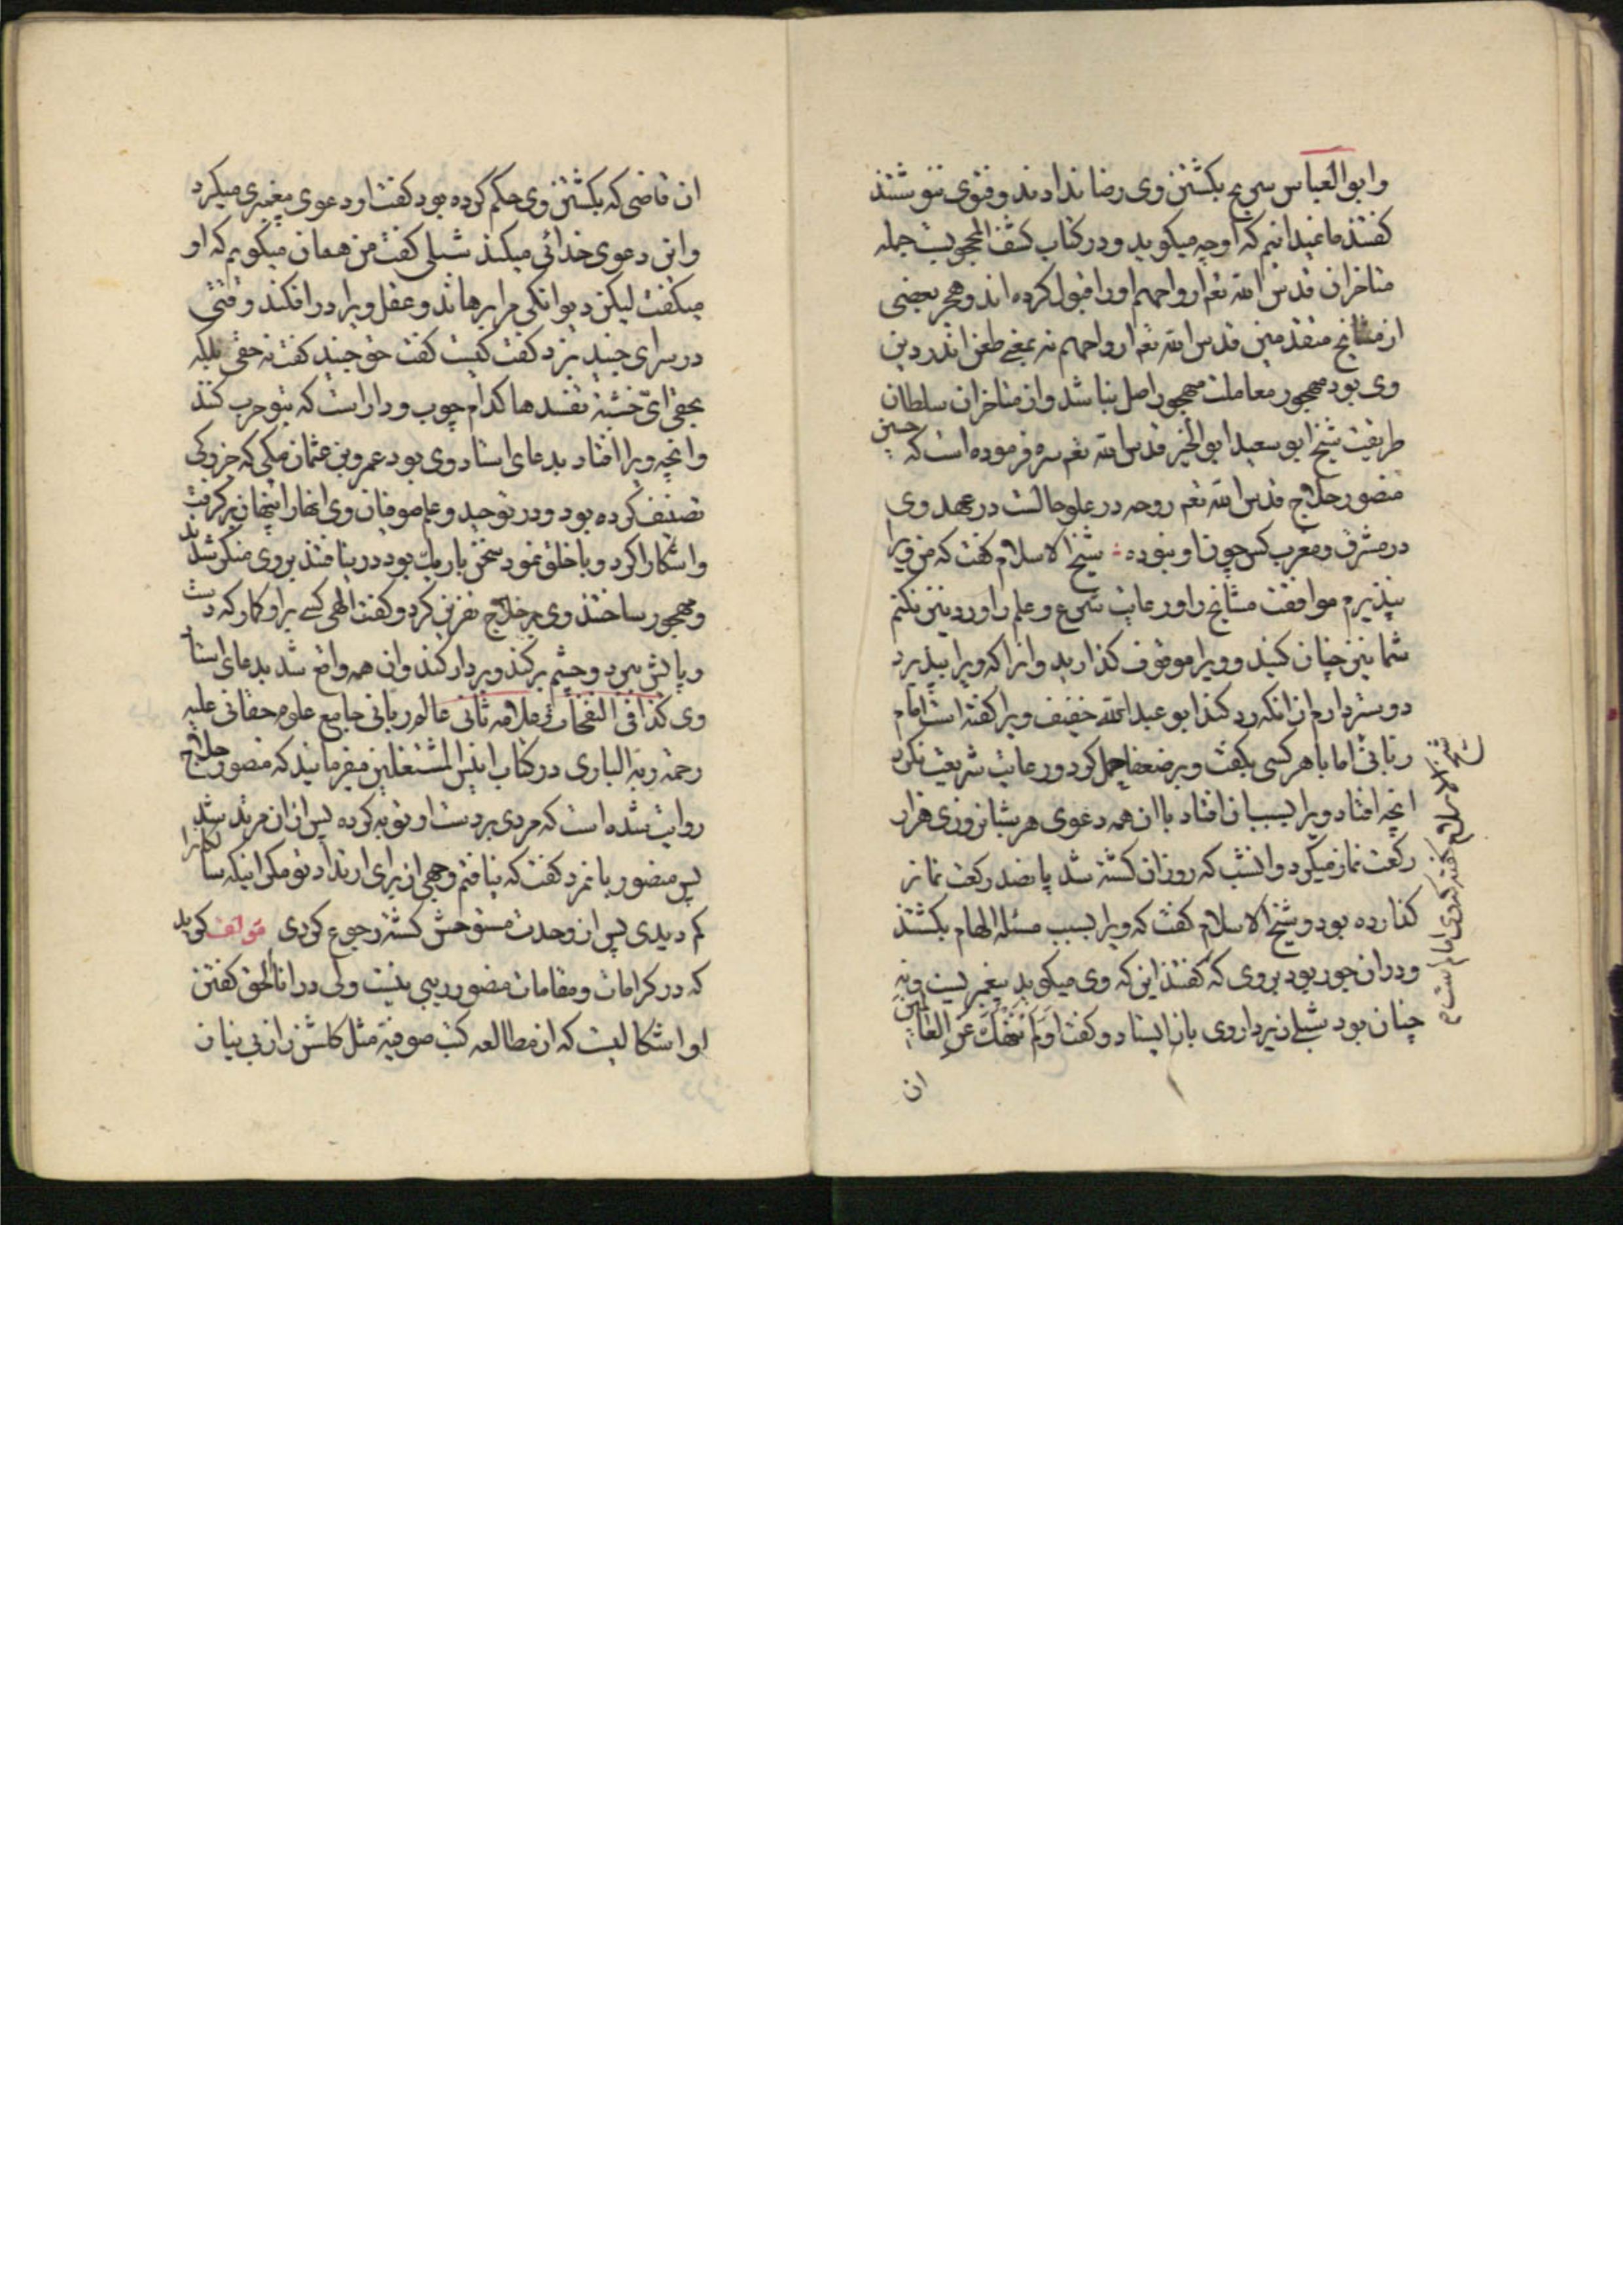 وابو العباس سریج بکشتن وی رضا ندادند و فتوی ننوشتند
کفتند ما نمیدانیم که او چه میکوید و در کتاب کشف المحجوبست جمله
متاخران قدس الله تعم ارواحهم او را قبول کرده اند و هجر بعضی
از مشایخ متقدمین قدس الله تعم ارواحهم نه بمعنی طعن اندر دین
وی بود مهجور معاملت مهجور اصل نباشد و از متاخران سلطان
طریقت شیخ ابو سعید ابو الخیر قدس الله تعم سره فرموده است که حسین
منصور حلاج قدس الله تعم روحه در علو حالست در عهد وی
در مشرق و مغرب کس چون او نبوده شیخ الاسلام کفت که من ویرا
نپذیرم موافقت مشایخ را و رعایت شرع و علم را و رد نیز نکنم
شما نیز چنان کنید و ویرا موقوف کذارید و انرا که ویرا بپذیرد
دوستر دارم از انکه رد کند ابو عبد الله خفیف ویرا کفته است امام
ربانی اما با هر کسی بکفت و بر ضعفا حمل کرد و رعایت شریعت نکرد
انچه افتاد ویرا بسبب ان افتاد با ان همه دعوی هر شبانروزی هزار
رکعت نماز میکرد و انشب که روز ان کشته شد پانصد رکعت نماز
کذارده بود و شیخ الاسلام کفت که ویرا بسبب مسئله الهام بکشتند
و در ان جور بود بروی که کفتند این که وی میکوید پیغمبریست و نه
چنان بود شبلی زیر دار وی باز ایستاد و کفت اَوَلَم نَنهَكَ عَنِ العٰالَمین
ان
شیخ الاسلام کفته که وی امام است
ان قاضی که بکشتن وی حکم کرده بود کفت او دعوی پیغمبری میکرد
واین دعوی خدائی میکند شبلی کفت من همان میکویم که او
میکفت لیکن دیوانکی مرا برهاند و عقل ویرا در افکند وقتی
در سرای جنید بزد کفت کیست کفت حق جنید کفت نه حقی بلکه
بحقی ایّ خشبة تفسدها کدام چوب و دار است که بتو چرب کنند
وانچه ویرا افتاد بدعای استاد وی بود عمرو بن عثمان مکی که جزوکی
تصنیف کرده بود و در توحید و علم صوفیان وی انهارا پنهان برکرفت
واشکارا کرد و با خلق نمود سخن باریک بود درنیافتند بروی منکر شدند
و مهجور ساختند وی بر حلاج نفرین کرد و کفت الهی کسی برو کمار که دست
و پایش ببرد و چشم برکند و بردار کند وان همه واقع شد بدعای استاد
وی کذا فی النفحات علامه ثانی عالم ربانی جامع علوم حقانی علیه
رحمة ربه الباری در کتاب انیس المشتغلین میفرمایند که منصور حلاج
روایت شده است که مردی بر دست او توبه کرده پس از ان مرتد شد
پس منصور با نمرد کفت که نیافتم وجهی از برای ارتداد تو مکر اینکه سالکانرا
کم دیدی پس از وحدت مستوحش کشته رجوع کردی مؤلف کوید
که در کرامات و مقامات منصور ریبی نیست ولی در انا الحق کفتن
او اشکالیست که از مطالعه کتب صوفیه مثل کلشن راز نی بیان